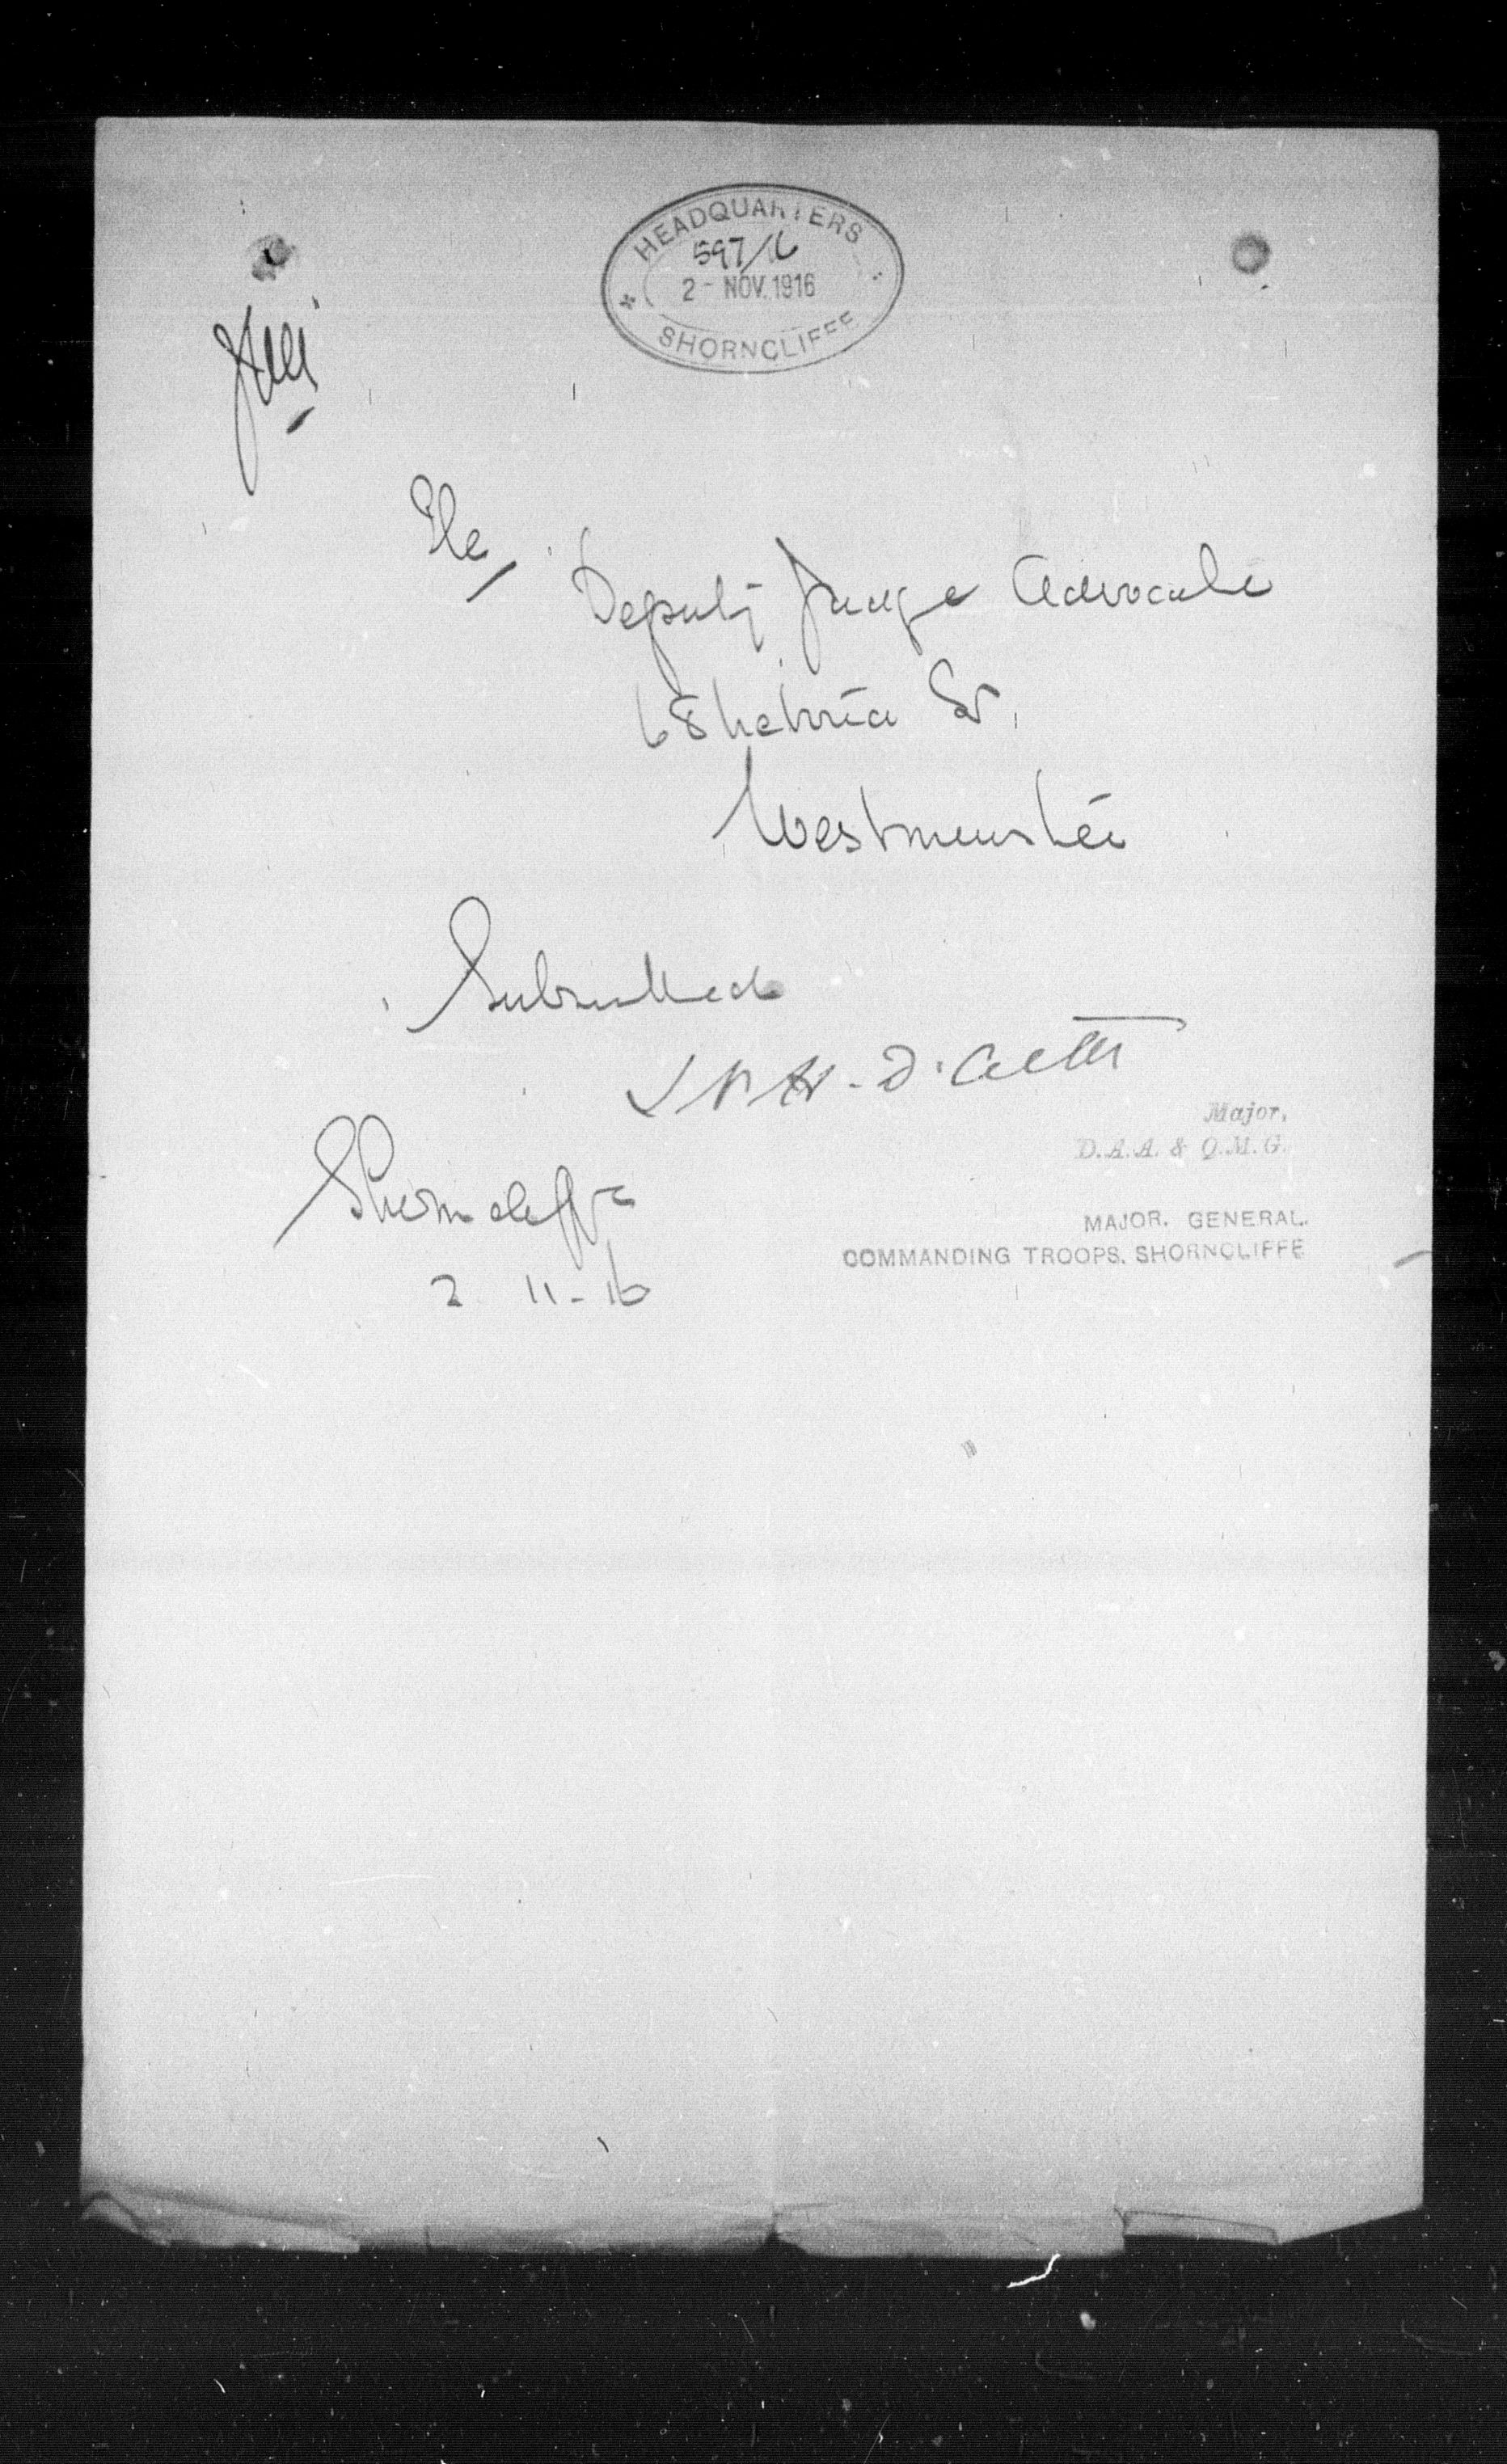 HEADQUARTERS
597/16
2 - NOV. 1916
SHORNCLIFFE
The
Deputy Judge Advocate
68 Victoria St.
Westminster
Submitted
Major,
D.A.A. & Q.M.G.
Shorncliffe
2 11-16
MAJOR. GENERAL.
COMMANDING TROOPS. SHORNCLIFFE